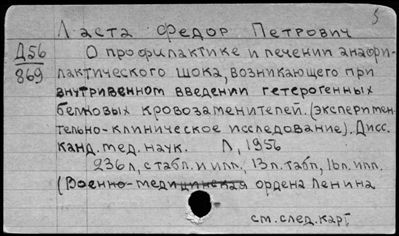 Ласта Федор Петрович
Д56
869
О профилактике и лечении анафи-
лактического шока, возникающего при
внутривенном введении гетерогенных
белковых кровозаменителей. (Эксперимен-
тельно-клиническое исследование). Дисс.
канд. мед. наук. Л, 1956
236 л, с табл. и илл., 13 л. табл, 16 л. илл.
(Военно-медицинская ордена Ленина
см. след. карт